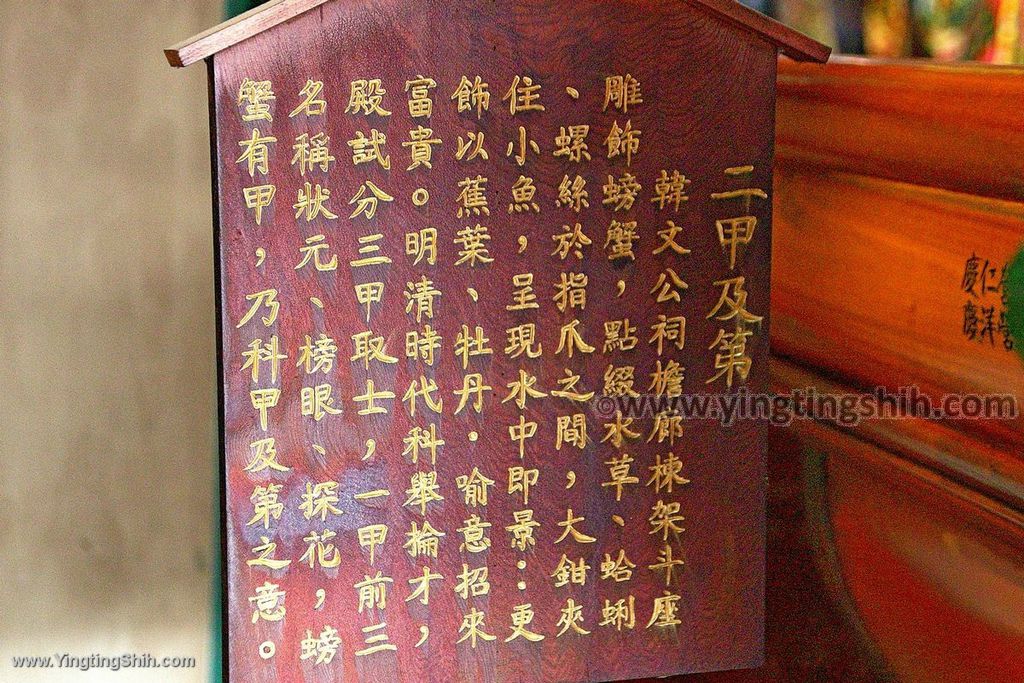 二甲及第
韓文公祠檐廊棟架斗座
雕飾螃蟹，點綴水草、蛤蜊
、螺絲於指爪之間，大鉗夾
住小魚，呈現水中即景：更
飾以蕉葉、牡丹．喻意招來
富貴。明清時代科舉掄才，
殿試分三甲取士，一甲前三
名稱狀元、榜眼、探花，螃
蟹有甲，乃科甲及第之意。
仁洋
慶慶
©www.yingtingshih.com
www.YingtingShih.com